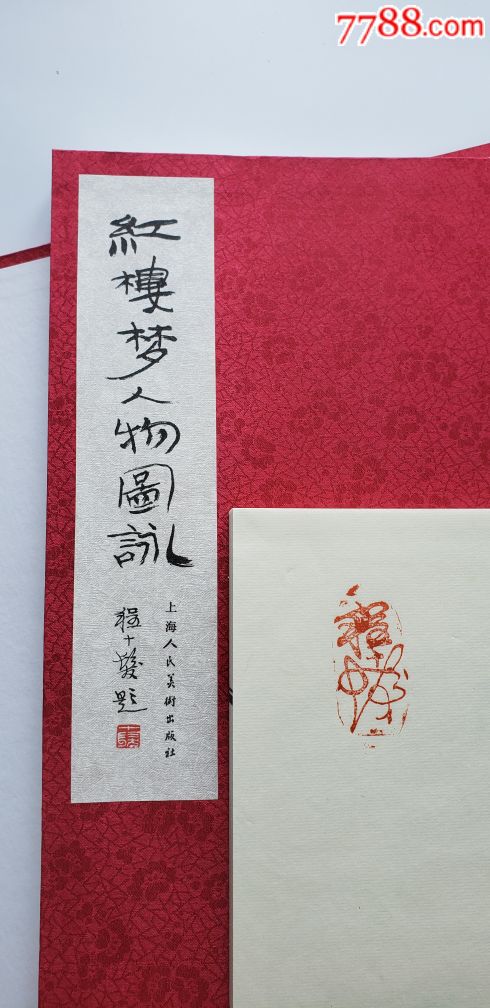 7788.com
紅樓梦人物圖詠
程十髮题
上海人民美術出版社